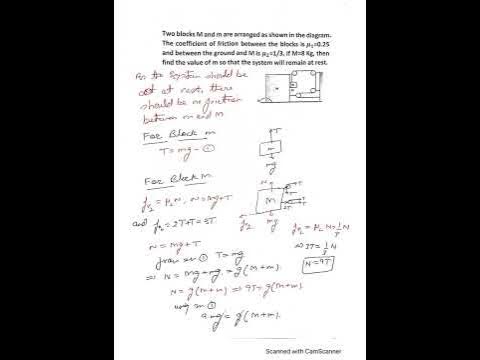 Two blocks M and m are arranged as shown in the diagram.
The coefficient of friction between the blocks is μ₁=0.25
and between the ground and M is μ₂=1/3. if M=8 Kg, then
find the value of m so that the system will remain at rest.
As the system should be
at rest, there
should be no friction
between m and M
For Block m
T = mg - ①
T
m
mg
For Block M
f₂ = μ₂ N, N = Mg + T
N
T
M
f₂
mg
and f₂ = 2T + T = 3T
f₂ = μ₂ N = 1/3 N
N = Mg + T
⇒ 3T = 1/3 N
from eq ① T = mg
N = 9T
⇒ N = Mg + mg = g(M+m)
N = g(M+m) ⇒ 9T = g(M+m)
using eq ①
9 mg = g(M+m)
Scanned with CamScanner